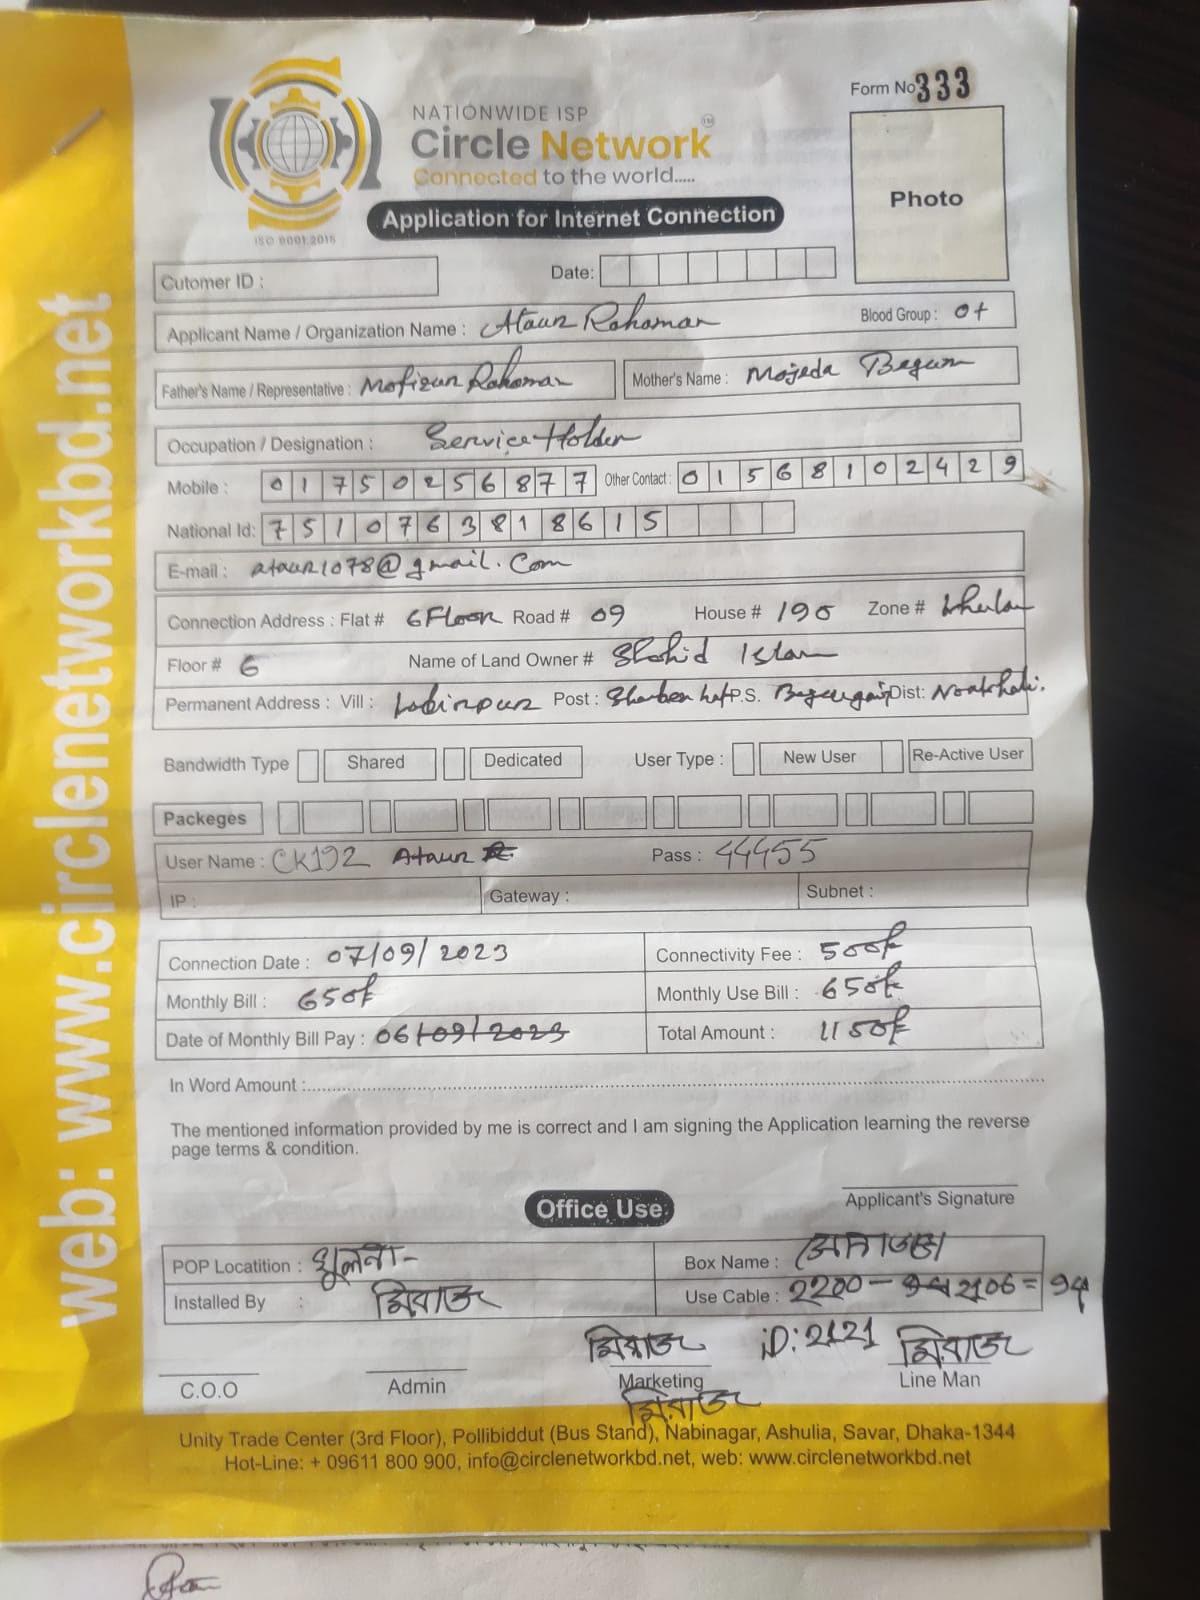 Form No 333
NATIONWIDE ISP
Circle Network TM
Connected to the world.....
ISO 9001:2015
Application for Internet Connection
Photo
web: www.circlenetworkbd.net
Cutomer ID :
Date:
Applicant Name / Organization Name : Ataur Rahaman Blood Group : O+
Father's Name / Representative : Mofizur Rahaman Mother's Name : Mojeda Begum
Occupation / Designation : Service Holder
Mobile : 01750256877 Other Contact : 01568102429
National Id: 7510763818615
E-mail : ataur1078@gmail.com
Connection Address : Flat # 6 Floor Road # 09 House # 190 Zone #
Floor # 6 Name of Land Owner # Shahid Islam
Permanent Address : Vill : Post : P.S. Dist: Noakhali.
Bandwidth Type Shared Dedicated User Type : New User Re-Active User
Packeges
User Name : CK192 Ataur Pass : 44455
IP : Gateway : Subnet :
Connection Date : 07/09/2023 Connectivity Fee : 500/-
Monthly Bill : 650/- Monthly Use Bill : 650/-
Date of Monthly Bill Pay : 06/09/2023 Total Amount : 1150/-
In Word Amount :
The mentioned information provided by me is correct and I am signing the Application learning the reverse
page terms & condition.
Applicant's Signature
Office Use
POP Locatition : খুলনা- Box Name :
Installed By : মিরাজ Use Cable : 2200 - 2106 = 94
মিরাজ iD: 2121 মিরাজ
C.O.O Admin Marketing Line Man
মিরাজ
Unity Trade Center (3rd Floor), Pollibiddut (Bus Stand), Nabinagar, Ashulia, Savar, Dhaka-1344
Hot-Line: + 09611 800 900, info@circlenetworkbd.net, web: www.circlenetworkbd.net